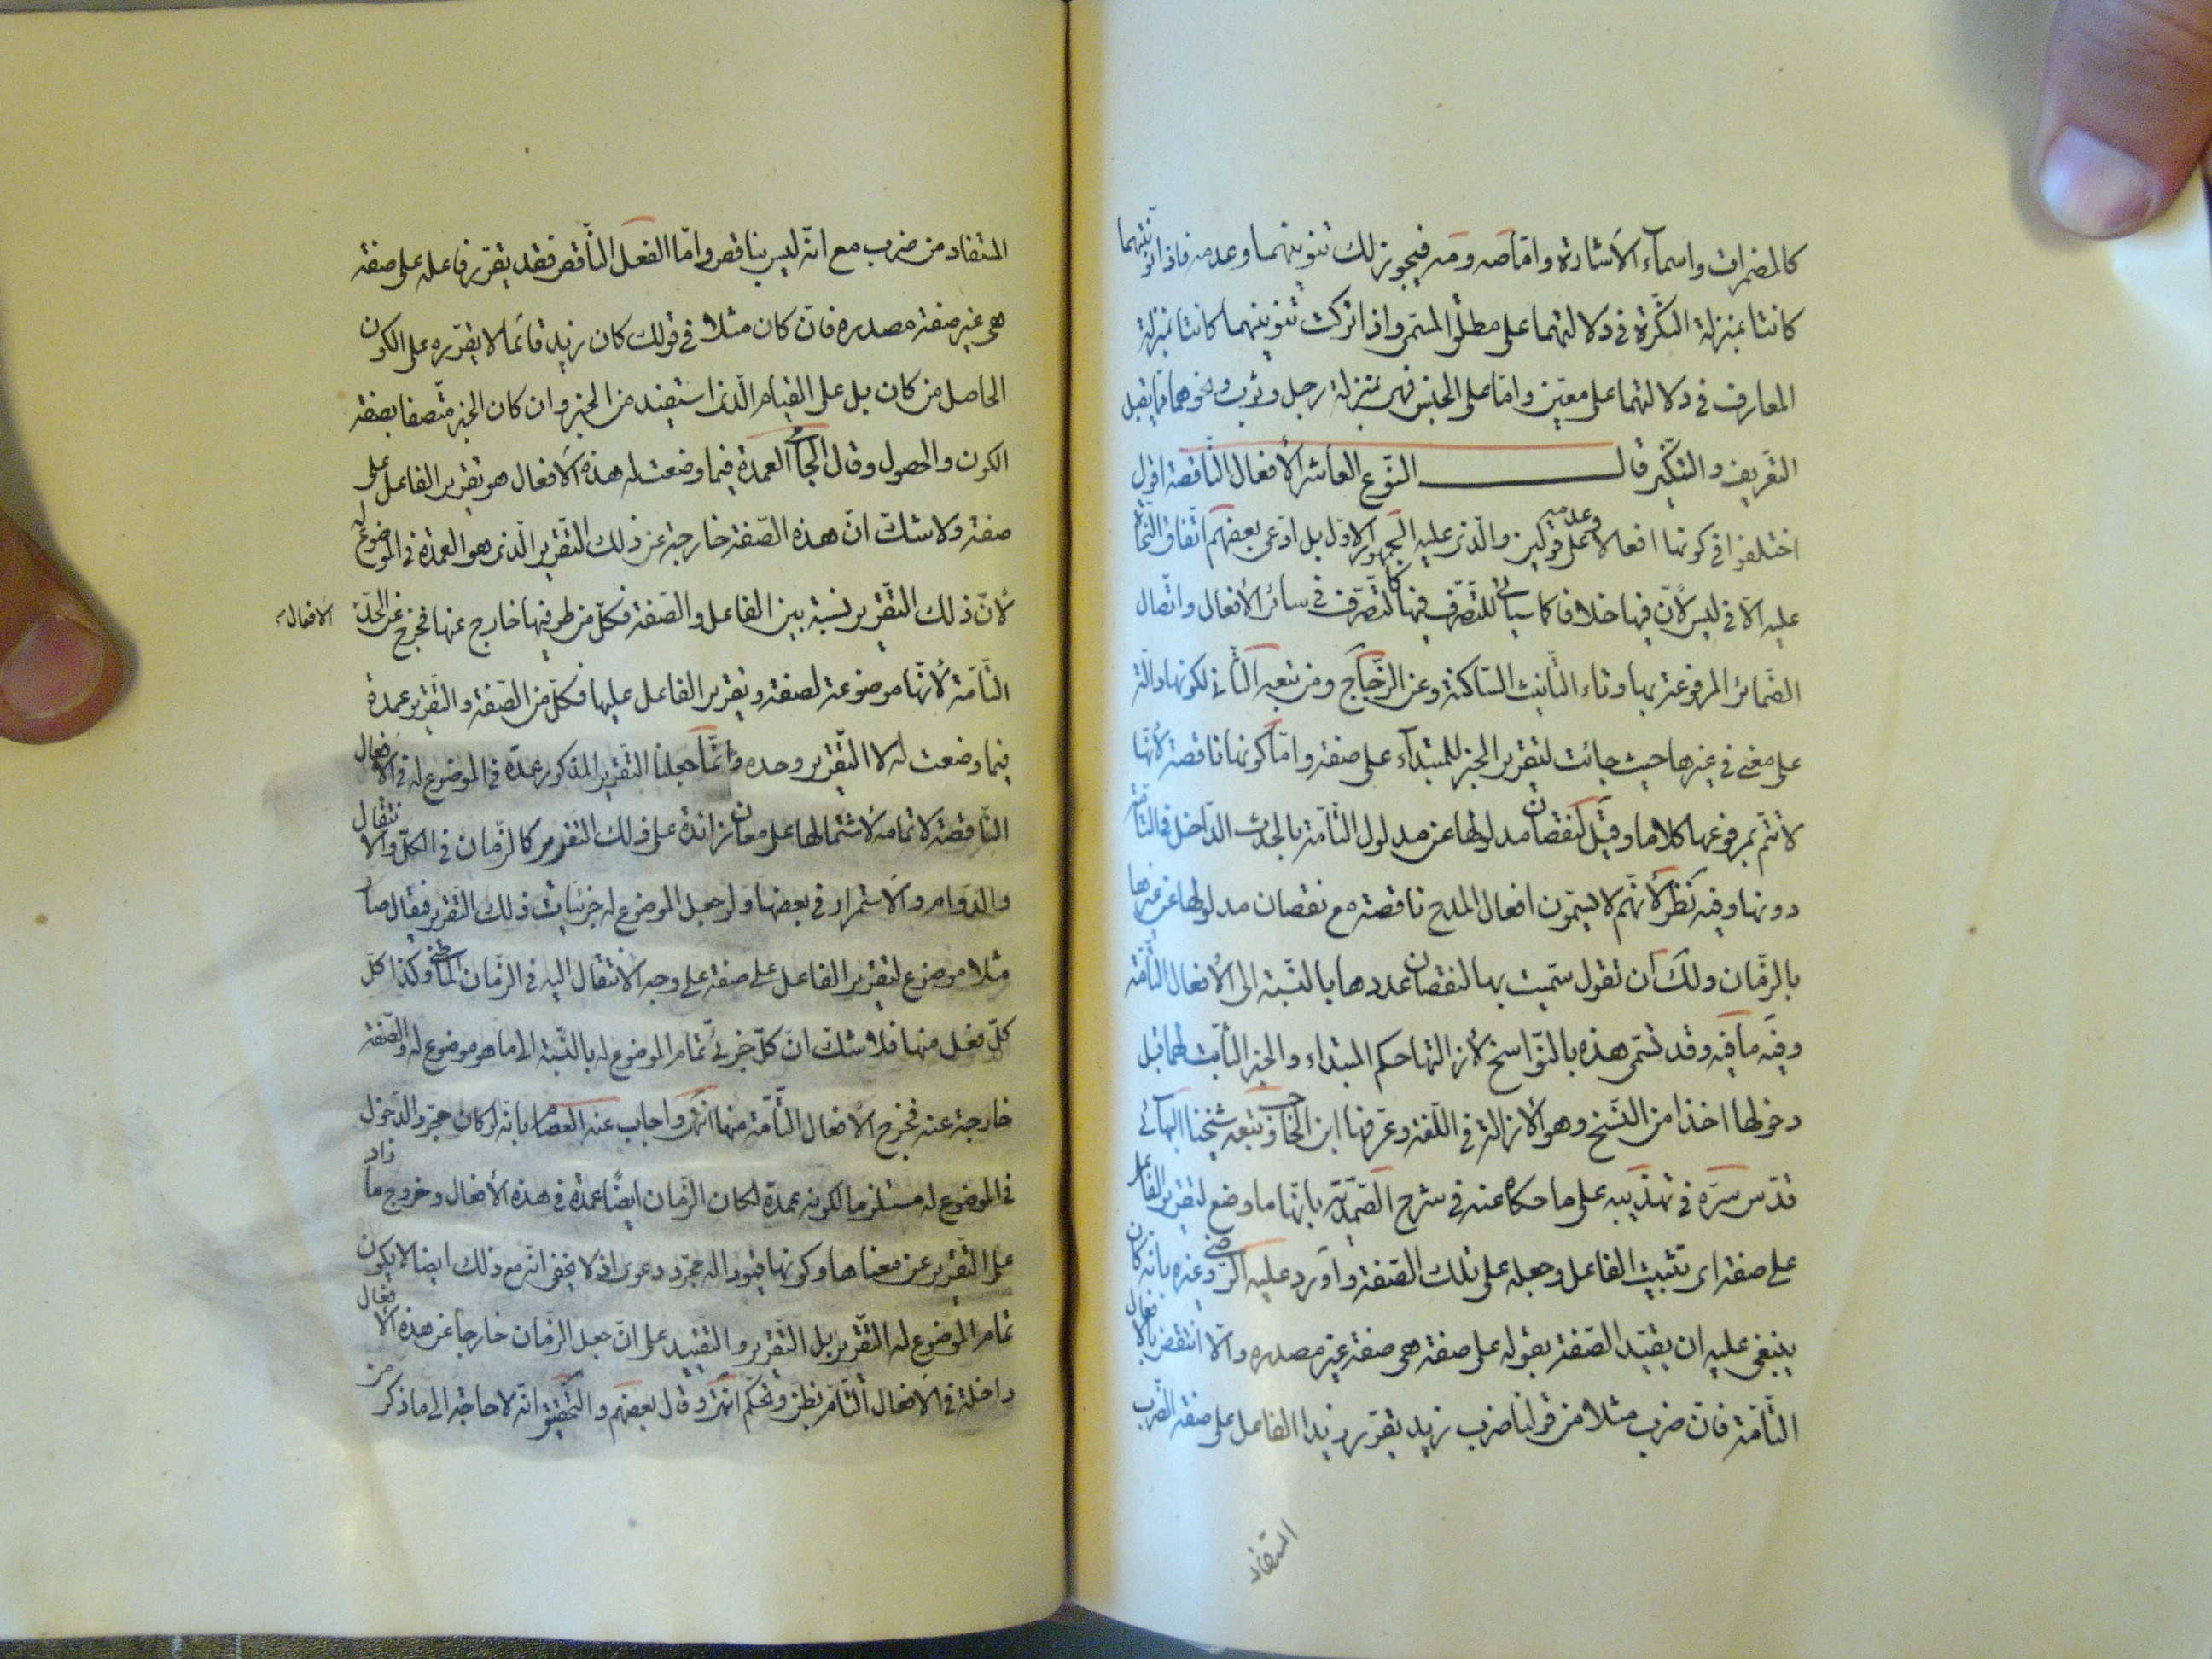 كالمضمرات واسمآء الاشارة وامّا صه ومه فيجوز لك تنوينهما وعدمه فاذا نوّنتهما
كانتا بمنزلة النّكرة فى دلالتهما على مطلق المسمّى واذا تركت تنوينهما كانتا بمنزلة
المعارف فى دلالتهما على معيّن وامّا على الجنس فهى بمنزلة رجل وثوب ونحوهما ممّا يقبل
التّعريف والتّنكير قال النّوع العاشر الأفعال النّاقصة اقول
اختلفوا فى كونها افعالا وعدمه على قولين والّذى عليه الجمهور الاوّل بل ادّعى بعضهم اتّفاق النّحاة
عليه الّا فى ليس لأنّ فيها خلافا كما سيأتى للتّصرّف فيها كالتّصرّف فى سائر الأفعال واتّصال
الضّمائر المرفوعة بها وتاء التّأنيث السّاكنة وعن الزّجّاج ومن تبعه الثّانى لكونها دالّة
على معنى فى غيرها حيث جائت لتقرير الخبر للمبتدآء على صفة وامّا كونها ناقصة لأنّها
لا تتمّ بمرفوعها كلاما وقيل لنقصان مدلولها عن مدلول التّامّة بالحدث الدّاخل فى التّامّة
دونها وفيه نظر لأنّهم لا يسمّون افعال المدح ناقصة مع نقصان مدلولها عن غيرها
بالزّمان ولك ان تقول سمّيت بها لنقصان عددها بالنّسبة الى الأفعال التّامّة
وفيه ما فيه وقد تسمّى هذه بالنّواسخ لأزالتها حكم المبتداء والخبر الثّابت لهما قبل
دخولها اخذا من النّسخ وهو الأزالة فى اللّغة وعرّفها ابن الحاجب وتبعه شيخنا البهآئى
قدّس سرّه فى تهذيبه على ما حكاه عنه فى شرح الصّمديّة بانّها ما وضع لتقرير الفاعل
على صفة اى تثبيت الفاعل وجعله على تلك الصّفة واورد عليه الرّضى وغيره بانّه كان
ينبغى عليه ان يقيّد الصّفة بقوله على صفة هى صفة غير مصدره والّا انتقض بالافعال
التّامّة فانّ ضرب مثلا من قولنا ضرب زيد يقرّر زيدا الفاعل على صفة الضّرب
المستفاد
المستفاد من ضرب مع انّه ليس بناقص وامّا الفعل النّاقص فقد يقرّر فاعله على صفة
هى غير صفة مصدره فانّ كان مثلا فى قولك كان زيد قائما لا يقرّره على الكون
الحاصل من كان بل على القيام الّذى استفيد من الخبر وان كان الخبر متّصفا بصفة
الكون والحصول وقال العمدة فيما وضعت له هذه الافعال هو تقرير الفاعل على
صفة ولا شكّ انّ هذه الصّفة خارجة عن ذلك التّقرير الّذى هو العمدة فى الموضوع له
لأنّ ذلك التّقرير نسبة بين الفاعل والصّفة فكلّ من طرفيها خارج عنها فخرج عن الحدّ الافعال
التّامّة لأنّها موضوعة لصفة وتقرير الفاعل عليها فكلّ من الصّفة والتّقرير عمدة
فيما وضعت له لا التّقرير وحده وانّما جعلنا التّقرير المذكور عمدة فى الموضوع له فى الافعال
النّاقصة لا تمامه لاشتمالها على معان زائدة على ذلك التقرير كالزّمان فى الكلّ والانتقال
والدّوام والاستمرار فى بعضها ولو جعل الموضوع له جزئيّات ذلك التّقرير فيقال صار
مثلا موضوع لتقرير الفاعل على صفة على وجه الانتقال اليه فى الزّمان الماضى وكذا كلّ
كلّ فعل منها فلا شكّ انّ كلّ جزئىّ تمام الموضوع له بالنّسبة الى ما هو موضوع له والصّفة
خارجة عنه فخرج الأفعال التّامّة منها انتهى واجاب عنه العصام بانّه لو كان مجرّد الدّخول
فى الموضوع له مستلزما لكونه عمدة لكان الزّمان ايضًا عمدة فى هذه الأفعال وخروج ما زاد
على التّقرير عن معناها وكونها قيودا له مجرّد دعوى اذ لا يخفى انّه مع ذلك ايضا لا يكون
تمام الموضوع له التّقرير بل التّقرير والتّقييد على انّ جعل الزّمان خارجا عن هذه الافعال
داخلة فى الافعال التّامّة نظر وتحكّم انتهى وقال بعضهم والتّحقيق انّه لا حاجة الى ما ذكر من